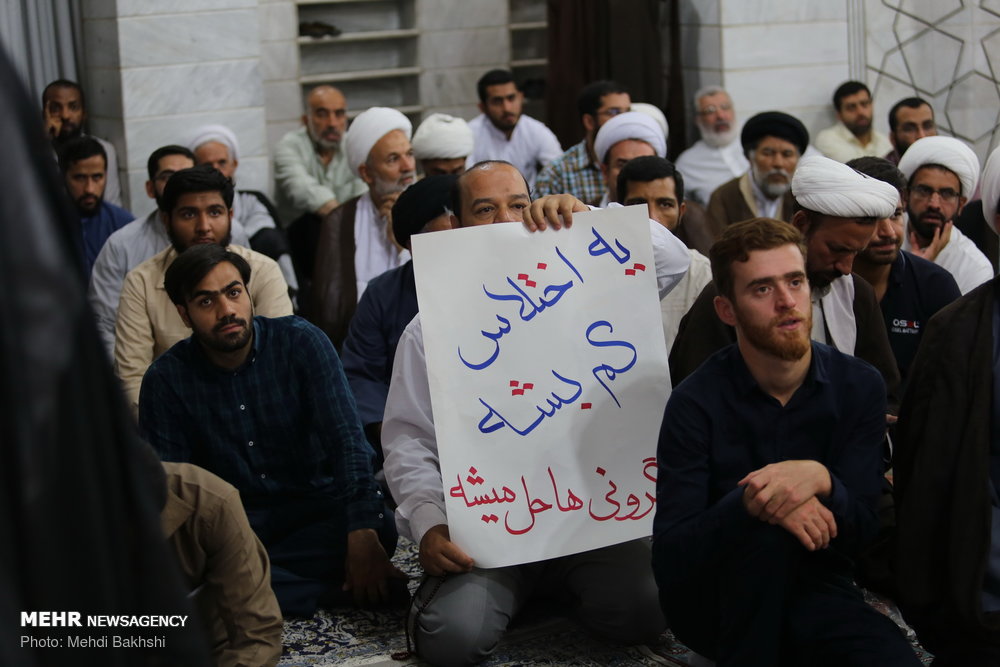 یه اختلاس
کم بشه
گرونی ها حل میشه
MEHR NEWSAGENCY
Photo: Mehdi Bakhshi